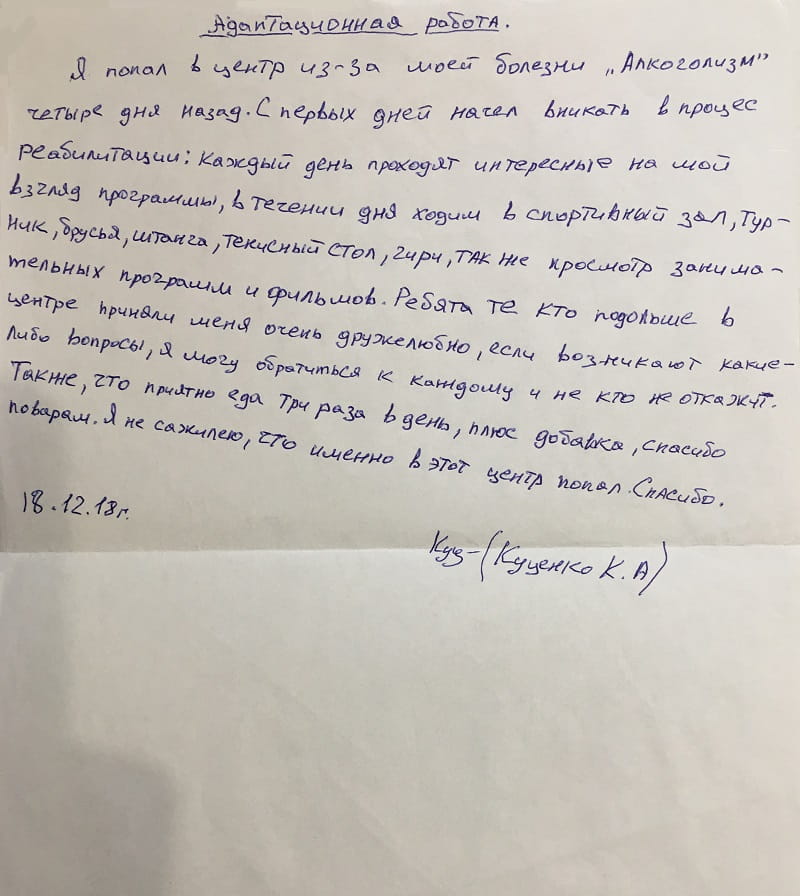 Адаптационная работа.
Я попал в центр из-за моей болезни „Алкоголизм”
четыре дня назад. С первых дней начел вникать в процес
реабилитации: каждый день проходят интересные на мой
взгляд программы, в течении дня ходим в спортивный зал, тур-
ник, брусья, штанга, текисный стол, гири, так же просмотр занима-
тельных программ и фильмов. Ребята те кто подольше в
центре приняли меня очень дружелюбно, если возникают какие-
либо вопросы, я могу обратиться к каждому и не кто не откажут.
Также, что приятно еда три раза в день, плюс добавка, спасибо
поварам. Я не сажилею, что именно в этот центр попал. Спасибо.
18.12.18г.
Куц-(Куценко К.А)